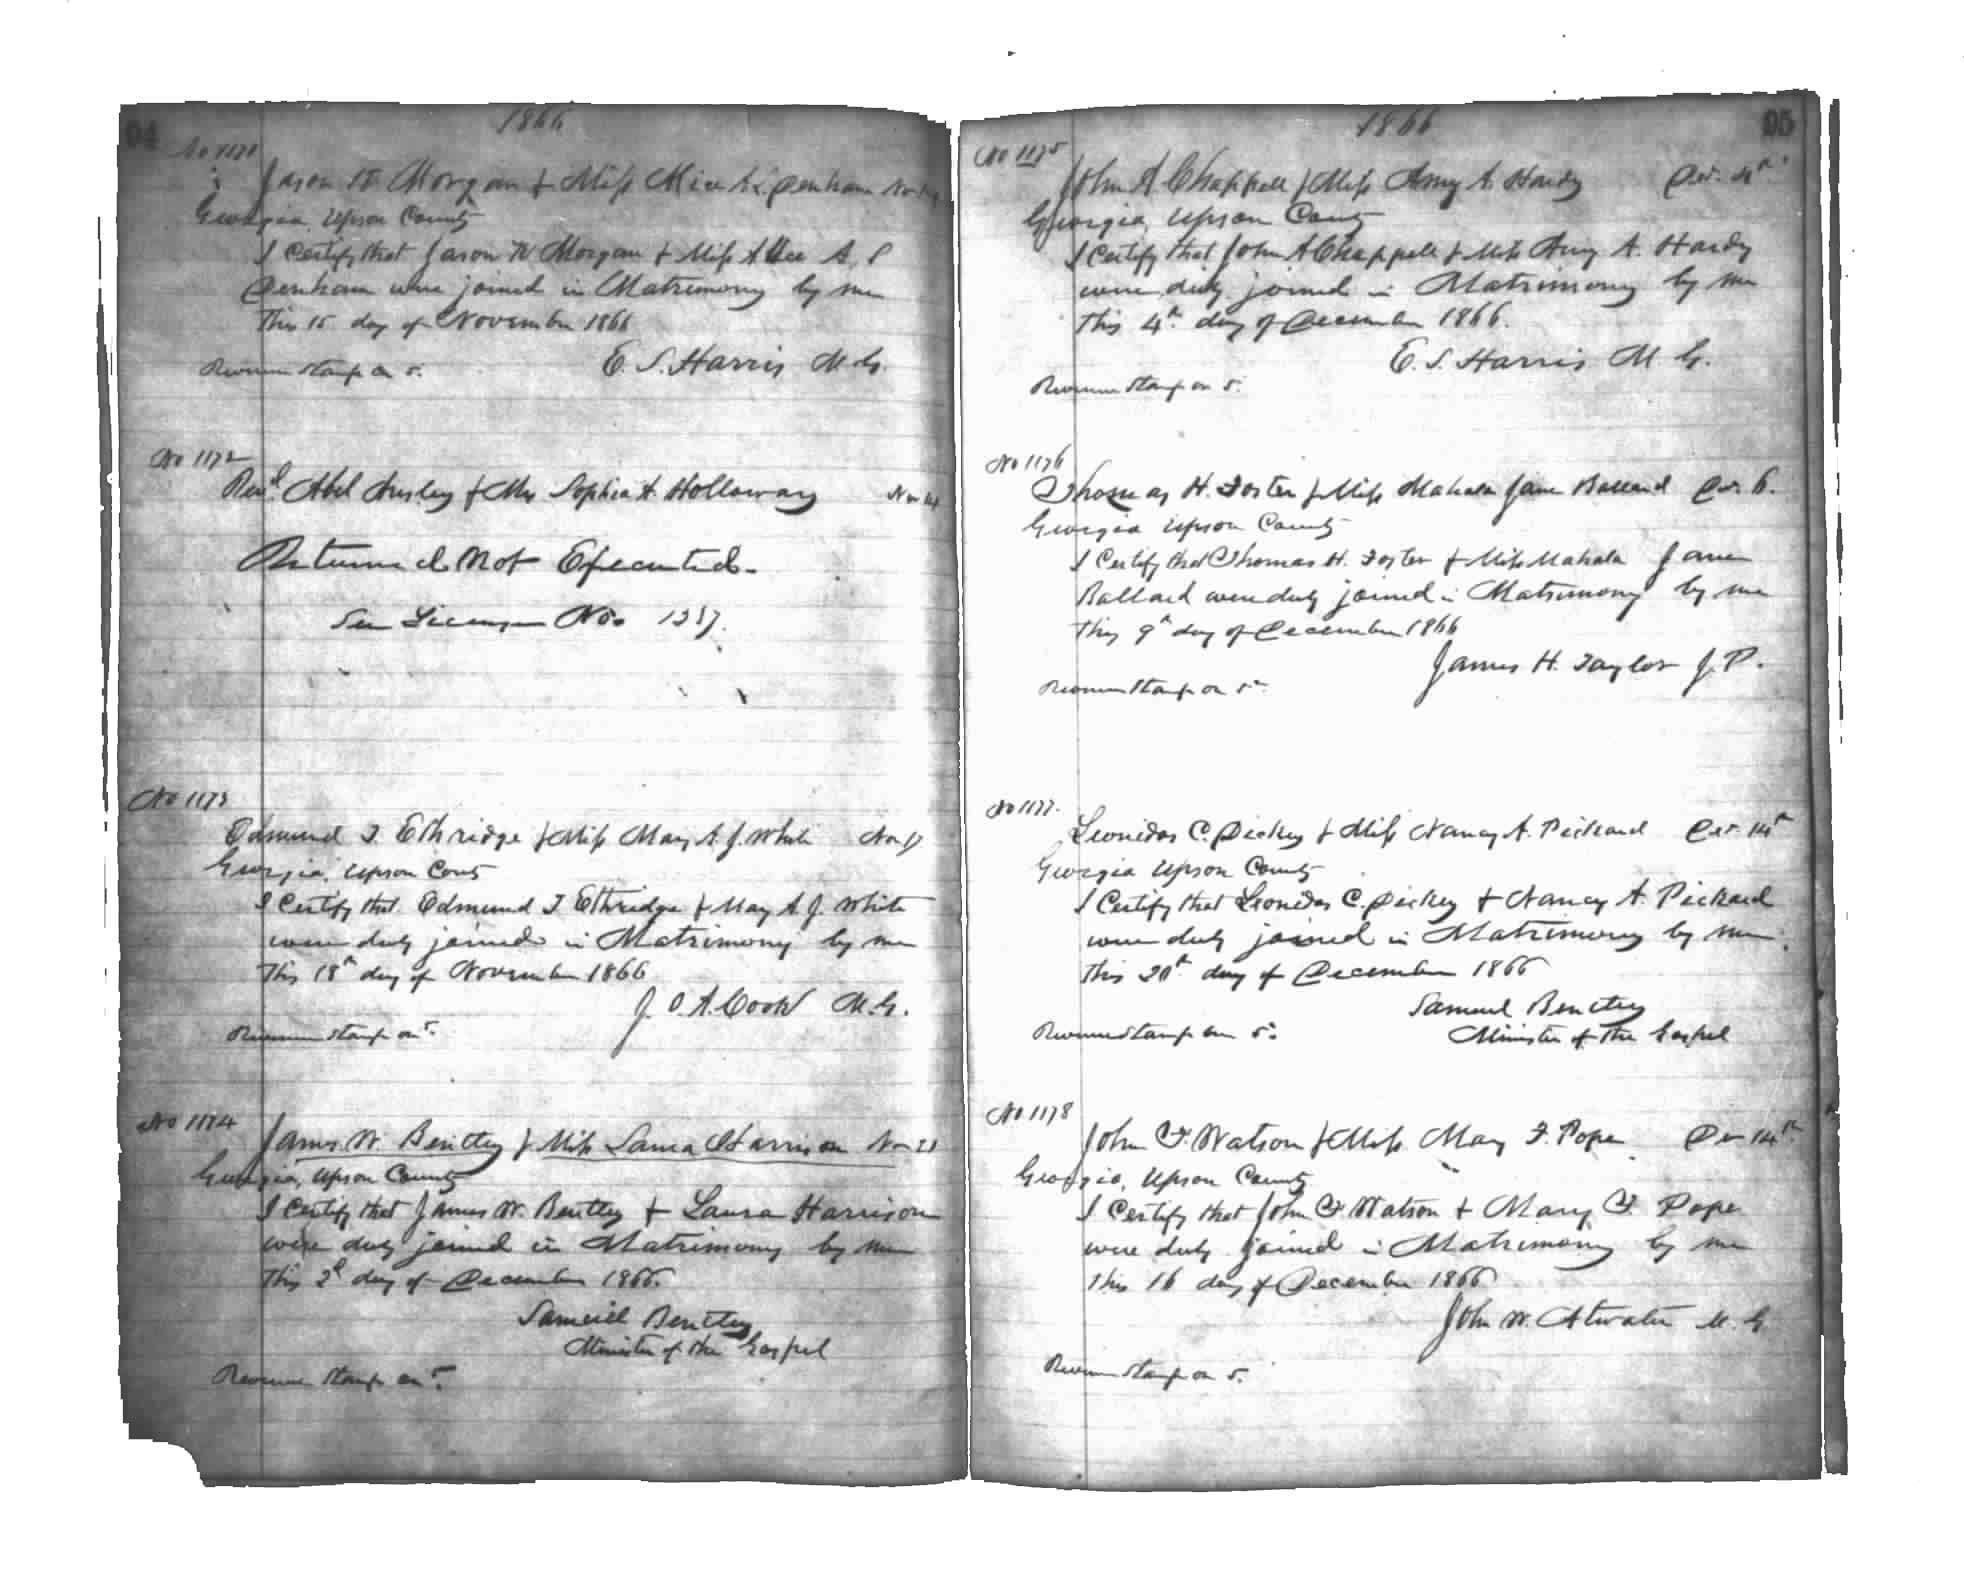 94
1866
No 1171
Jason W Morgan & Miss Alice A. Denham Nov
Georgia, Upson County
I Certify that Jason W Morgan & Miss Allice A.
Denham were joined in Matrimony by me
This 15 day of November 1866
E. S. Harris M. G.
Revenue Stamp on 5.
No 1172
Revd. Abel Ansley & Mrs Sophia A. Holloway Nov 14
Returned Not Executed.
See License No.
No 1173
Edmund T. Ethridge & Miss Mary A. J. White Nov 17
Georgia, Upson County
I Certify that Edmund T Ethridge & Mary A. J. White
were duly joined in Matrimony by me
This 18th day of November 1866
J. O. A. Cook M. G.
Revenue Stamp on 5.
No 1174
James W. Bentley & Miss Laura Harrison Nov 21
Georgia, Upson County
I Certify that James W. Bentley & Laura Harrison
were duly joined in Matrimony by me
This 2d day of December 1866.
Samuel Bentley
Minister of the Gospel
Revenue Stamp on 5.
95
1866
No 1175
John A Chappell & Miss Amy A. Hardy Dec. 4th
Georgia, Upson County
I Certify that John A Chappell & Miss Amy A. Hardy
were duly joined in Matrimony by me
This 4th day of December 1866.
E. S. Harris M. G.
Revenue Stamp on 5.
No 1176
Thomas H. Foster & Miss Mahala Jane Ballard Dec. 6.
Georgia Upson County
I Certify that Thomas H. Foster & Miss Mahala Jane
Ballard were duly joined in Matrimony by me
This 9th day of December 1866
James H. Taylor J. P.
Revenue Stamp on 5.
No 1177.
Leonidas C. Dickey & Miss Nancy A. Pickard Dec 14th
Georgia Upson County
I Certify that Leonidas C. Dickey & Nancy A. Pickard
were duly joined in Matrimony by me
This 20th day of December 1866
Samuel Bentley
Minister of the Gospel
Revenue Stamp on 5.
No 1178
John F. Watson & Miss Mary F. Pope Dec 14th
Georgia, Upson County
I Certify that John F. Watson & Mary F. Pope
were duly joined in Matrimony by me
This 16 day of December 1866
John W. Atwater M. G.
Revenue Stamp on 5.